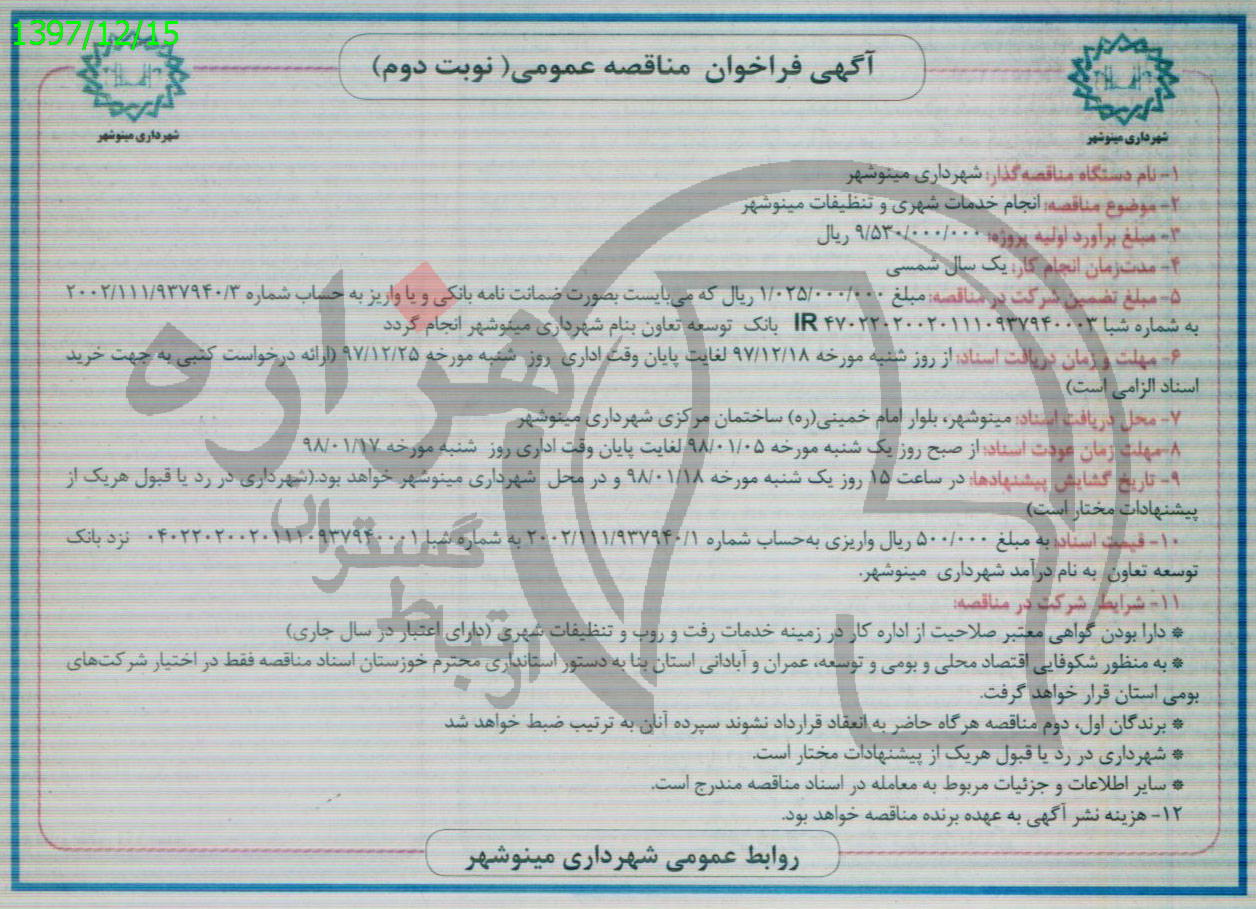 1397/12/15
آگهی فراخوان مناقصه عمومی( نوبت دوم)
شهرداری مینوشهر
شهرداری مینوشهر
۱- نام دستگاه مناقصه‌گذار: شهرداری مینوشهر
۲- موضوع مناقصه: انجام خدمات شهری و تنظیفات مینوشهر
۳- مبلغ برآورد اولیه پروژه: ۹/۵۳۰/۰۰۰/۰۰۰ ریال
۴- مدت‌زمان انجام کار: یک سال شمسی
۵- مبلغ تضمین شرکت در مناقصه: مبلغ ۱/۰۲۵/۰۰۰/۰۰۰ ریال که می‌بایست بصورت ضمانت نامه بانکی و یا واریز به حساب شماره ۲۰۰۲/۱۱۱/۹۳۷۹۴۰/۳
به شماره شبا IR ۴۷۰۲۲۰۲۰۰۲۰۱۱۱۰۹۳۷۹۴۰۰۰۳ بانک توسعه تعاون بنام شهرداری مینوشهر انجام گردد
۶- مهلت و زمان دریافت اسناد: از روز شنبه مورخه ۹۷/۱۲/۱۸ لغایت پایان وقت اداری روز شنبه مورخه ۹۷/۱۲/۲۵ (ارائه درخواست کتبی به جهت خرید
اسناد الزامی است)
۷- محل دریافت اسناد: مینوشهر، بلوار امام خمینی(ره) ساختمان مرکزی شهرداری مینوشهر
۸-مهلت زمان عودت اسناد: از صبح روز یک شنبه مورخه ۹۸/۰۱/۰۵ لغایت پایان وقت اداری روز شنبه مورخه ۹۸/۰۱/۱۷
۹- تاریخ گشایش پیشنهادها: در ساعت ۱۵ روز یک شنبه مورخه ۹۸/۰۱/۱۸ و در محل شهرداری مینوشهر خواهد بود.(شهرداری در رد یا قبول هریک از
پیشنهادات مختار است)
۱۰- قیمت اسناد: به مبلغ ۵۰۰/۰۰۰ ریال واریزی به‌حساب شماره ۲۰۰۲/۱۱۱/۹۳۷۹۴۰/۱ به شماره شبا ۰۴۰۲۲۰۲۰۰۲۰۱۱۱۰۹۳۷۹۴۰۰۰۱ نزد بانک
توسعه تعاون به نام درآمد شهرداری مینوشهر.
۱۱- شرایط شرکت در مناقصه:
* دارا بودن گواهی معتبر صلاحیت از اداره کار در زمینه خدمات رفت و روب و تنظیفات شهری (دارای اعتبار در سال جاری)
* به منظور شکوفایی اقتصاد محلی و بومی و توسعه، عمران و آبادانی استان بنا به دستور استانداری محترم خوزستان اسناد مناقصه فقط در اختیار شرکت‌های
بومی استان قرار خواهد گرفت.
* برندگان اول، دوم مناقصه هرگاه حاضر به انعقاد قرارداد نشوند سپرده آنان به ترتیب ضبط خواهد شد
* شهرداری در رد یا قبول هریک از پیشنهادات مختار است.
* سایر اطلاعات و جزئیات مربوط به معامله در اسناد مناقصه مندرج است.
۱۲- هزینه نشر آگهی به عهده برنده مناقصه خواهد بود.
روابط عمومی شهرداری مینوشهر
هزاره
گستران
ارتباط